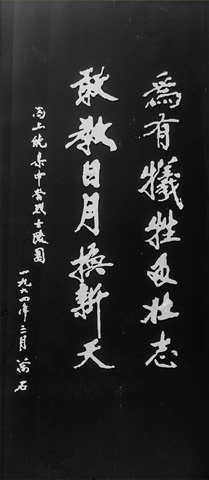 為有犧牲多壯志
敢教日月換新天
为上饒集中營烈士陵園
一九六四年三月 石